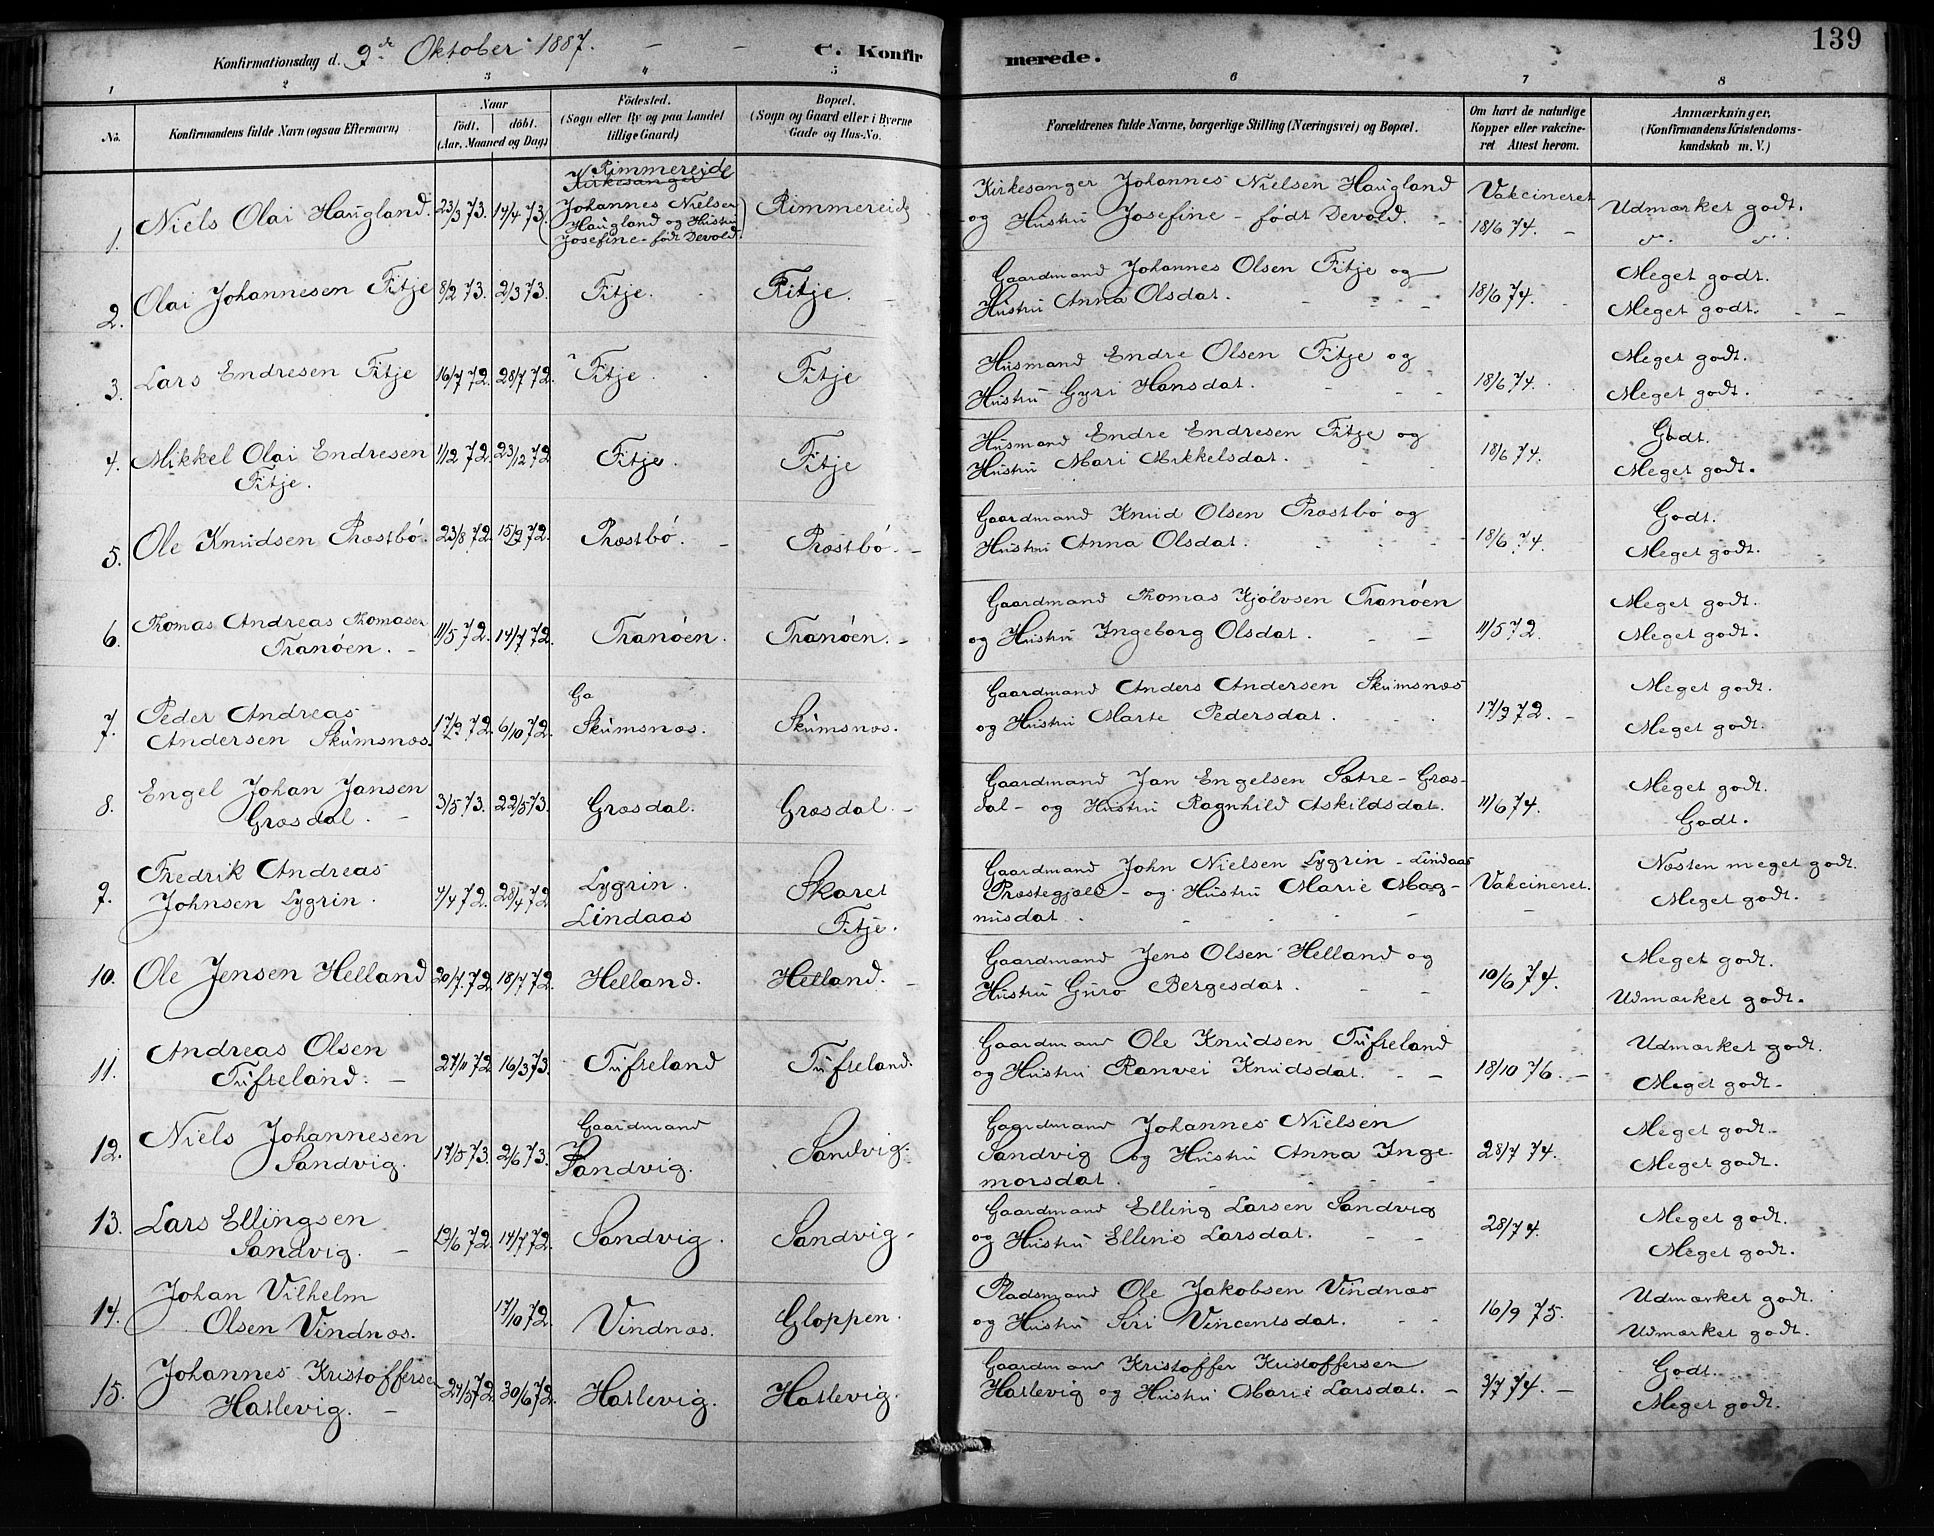 139
Konfirmationsdag d. 9de Oktober 1887. C. Konfir merede.
1 2 3 4 5 6 7 8
No. Konfirmandens fulde Navn (ogsaa Efternavn)
Naar födt. döbt. (Aar, Maaned og Dag)
Födested. (Sogn eller By og paa Landet tillige Gaard)
Bopæl. (Sogn og Gaard eller i Byerne Gade og Hus-No.
Forældrenes fulde Navne, borgerlige Stilling (Næringsvei) og Bopæl.
Om havt de naturlige Kopper eller vakcineret Attest herom.
Anmærkninger. (Konfirmandens Kristendomskundskab m. V.)
1. Niels Olai Haugland. 23/3 73. 14/4 73. Rimmereide
Kirkesanger
Johannes Nielsen
Haugland og Hustru
Josefine - födt Devold.
Rimmereide
Kirkesanger Johannes Nielsen Haugland Vakcineret Udmærket godt.
og Hustru Josefine - födt Devold. 18/6 74.
2. Olai Johannesen Fitje 8/2 73. 2/3 73. Fitje. Fitje.
Gaardmand Johannes Olsen Fitje og 18/6 74. Meget godt.
Hustru Anna Olsdat. Meget godt.
3. Lars Endresen Fitje 16/7 72. 28/7 72. Fitje. Fitje
Husmand Endre Olsen Fitje og 18/6 74. Meget godt.
Hustru Gyri Hansdat. Meget godt.
4. Mikkel Olai Endresen 1/12 72. 23/12 72 Fitje. Fitje
Fitje.
Husmand Endre Endresen Fitje og 18/6 74. Godt.
Hustru Mari Mikkelsdat. Meget godt.
5. Ole Knudsen Præstbö. 23/8 72. 15/9 72. Præstbö. Præstbö.
Gaardmand Knud Olsen Præstbö og 18/6 74. Godt.
Hustru Anna Olsdat. Meget godt.
6. Thomas Andreas Thomasen 11/5 72. 14/7 72. Tranöen. Tranöen.
Tranöen.
Gaardmand Thomas Kjölvsen Tranöen 11/5 72. Meget godt.
og Hustru Ingeborg Olsdat. Meget godt.
7. Peder Andreas Ga
Andersen Skumsnæs. 17/9 72. 6/10 72. Skumsnæs. Skumsnæs.
Gaardmand Anders Andersen Skumsnæs 17/9 72. Meget godt.
og Hustru Marte Pedersdat. Meget godt.
8. Engel Johan Jansen 3/5 73. 22/5 73. Græsdal. Græsdal.
Græsdal.
Gaardmand Jan Engelsen Sætre - Græs- 11/6 74. Meget godt.
dal - og Hustru Ragnhild Askildsdat. Godt.
9. Fredrik Andreas Lygrin. Skaret
Johnsen Lygrin. 4/4 72. 28/4 72 Lindaas Fitje.
Gaardmand John Nielsen Lygrin - Lindaas Næsten meget godt.
Præstegjæld - og Hustru Marie Mag- Vakcineret. Meget godt.
nusdat.
10. Ole Jensen Helland 20/7 72. 18/7 72. Helland. Helland.
Gaardmand Jens Olsen Helland og 10/6 74. Meget godt.
Hustru Guro Bergesdat. Udmærket godt.
11. Andreas Olsen 27/11 72. 16/3 73. Tufteland Tufteland.
Tufteland.
Gaardmand Ole Knudsen Tufteland Udmærket godt.
og Hustru Ranvei Knudsdat. 18/10 76. Meget godt.
12. Niels Johannesen Gaardmand
Sandvig. 17/5 73. 2/6 73. Sandvig. Sandvig.
Gaardmand Johannes Nielsen Meget godt.
Sandvig og Hustru Anna Inge- 28/7 74. Meget godt.
morsdat.
13. Lars Ellingsen
Sandvig. 19/6 72. 14/7 72. Sandvig. Sandvig
Gaardmand Elling Larsen Sandvig 28/7 4. Meget godt.
og Hustru Elline Larsdat. Meget godt.
14. Johan Vilhelm 17/10 72. Vindnæs. Gloppen.
Olsen Vindnæs.
Pladsmand Ole Jakobsen Vindnæs 16/9 75. Udmærket godt.
og Hustru Siri Vincentsdat. Udmærket godt.
15. Johannes Kristoffersen 24/5 72. 30/6 72. Hatlevig. Hatlevig.
Hatlevig.
Gaardmand Kristoffer Kristoffersen Godt.
Hatlevig og Hustru Marie Larsdat. 3/7 74. Meget godt.